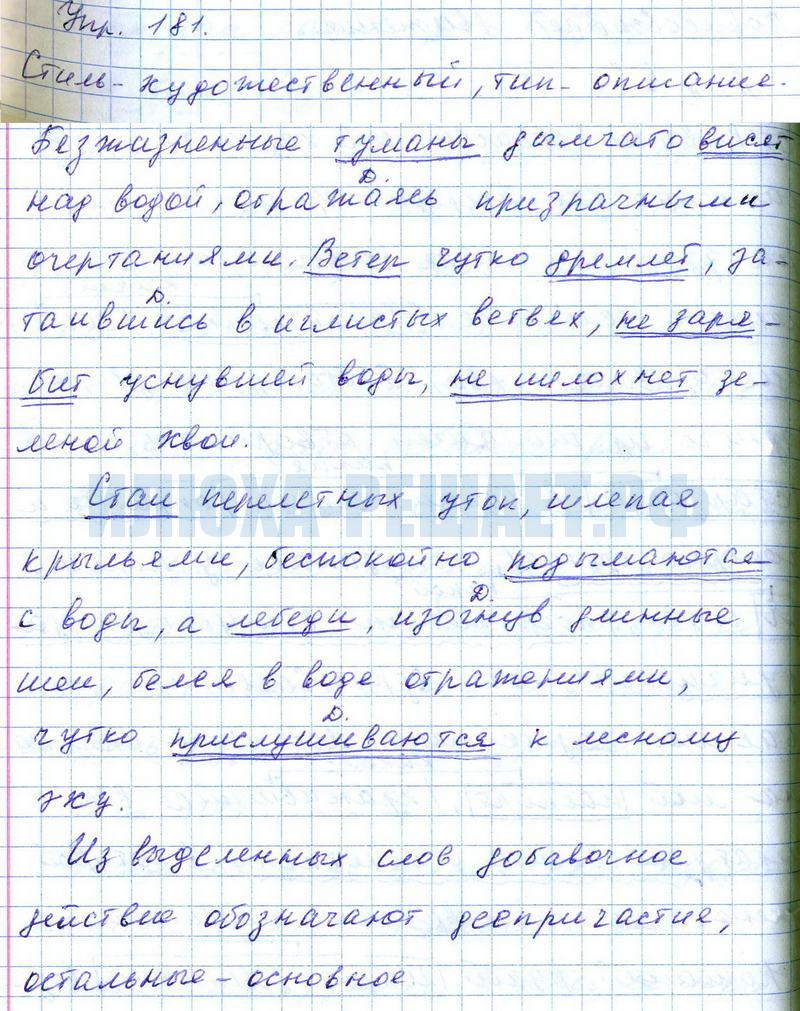 Упр. 181.
Стиль - художественный, тип - описание.
Безжизненные туманы дымчато висят
над водой, отражаясь призрачными
Д.
очертаниями. Ветер чутко дремлет, за-
таившись в иглистых ветвях, не заря-
Д.
бит уснувшей воды, не шелохнет зе-
леной хвои.
Стаи перелетных уток, шлепая
ИЛЮХА-РЕШАЕТ.РФ
крыльями, беспокойно подымаются
с воды, а лебеди, изогнув длинные
Д.
шеи, белея в воде отражениями,
чутко прислушиваются к лесному
Д.
эху.
Из выделенных слов добавочное
действие обозначают деепричастия,
остальные - основное